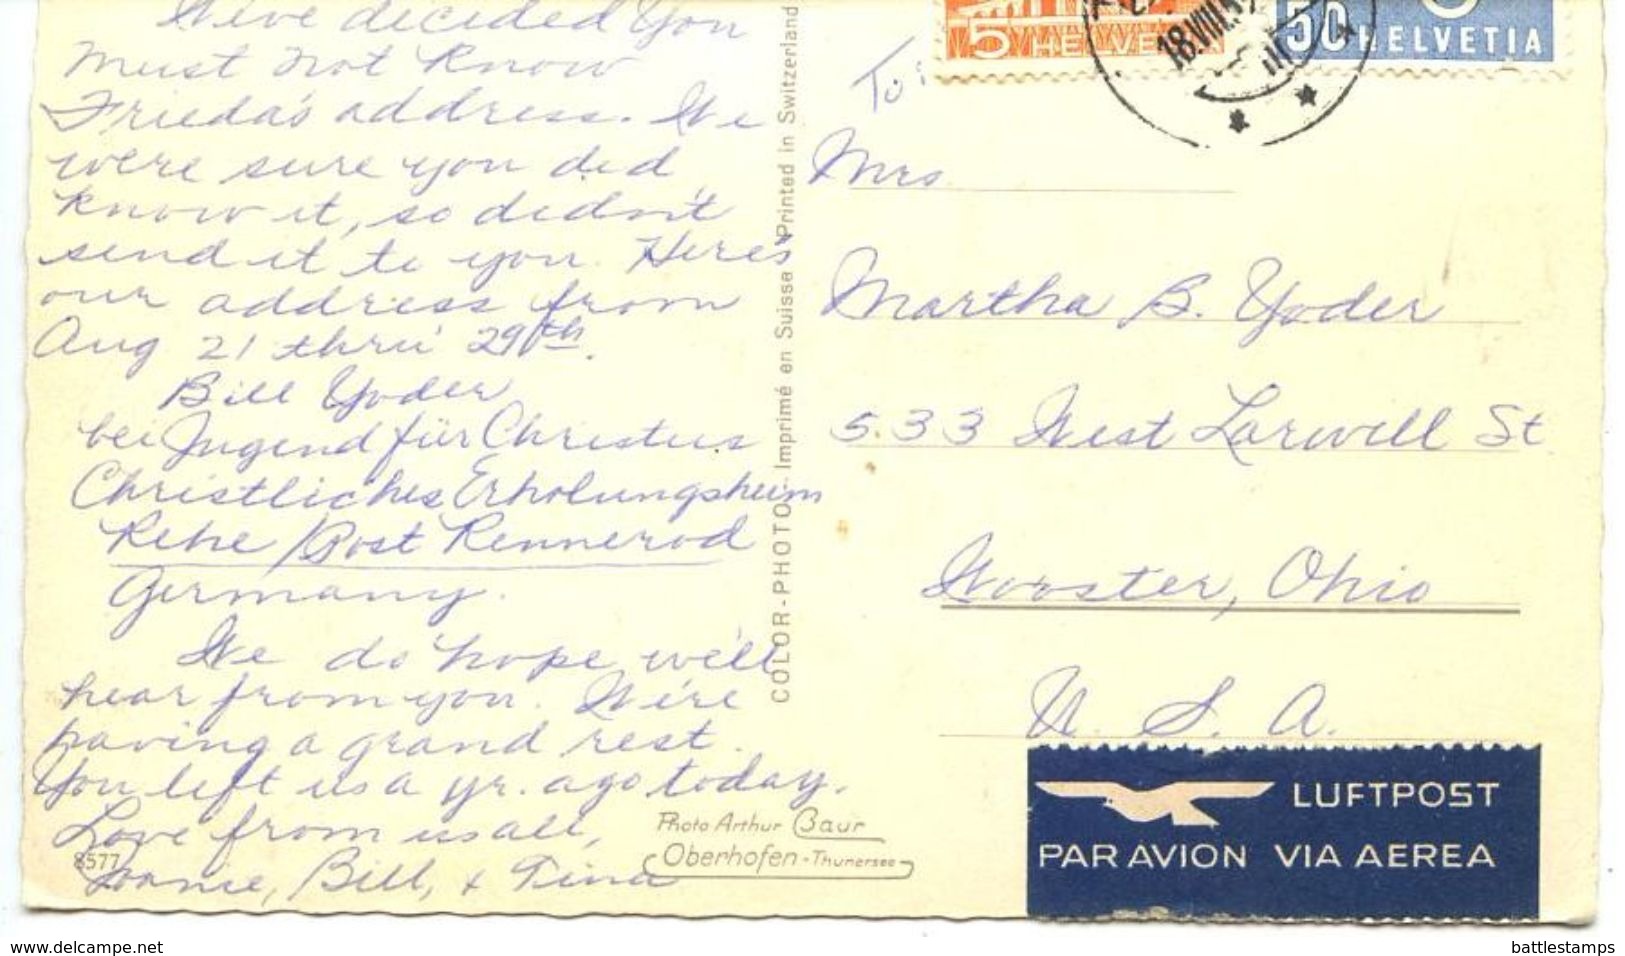 We've decided you
must not know
Frieda's address. We
were sure you did
know it, so didn't
send it to you. Here's
our address from
Aug 21 thru 29th.
Bill Yoder
bei Jugend für Christus
Christliches Erholungsheim
Rehe / Post Rennerod
Germany.
We do hope we'll
hear from you. We're
having a grand rest.
You left us a yr. ago today.
Love from us all,
Joanie, Bill, & Tina
8577
Photo Arthur Baur
Oberhofen - Thunersee
COLOR-PHOTO - Imprimé en Suisse Printed in Switzerland
5 HELVETIA
50 HELVETIA
18.VIII.
To:
Mrs
Martha B. Yoder
533 West Larwill St
Wooster, Ohio
U. S. A.
LUFTPOST
PAR AVION VIA AEREA
www.delcampe.net
battlestamps